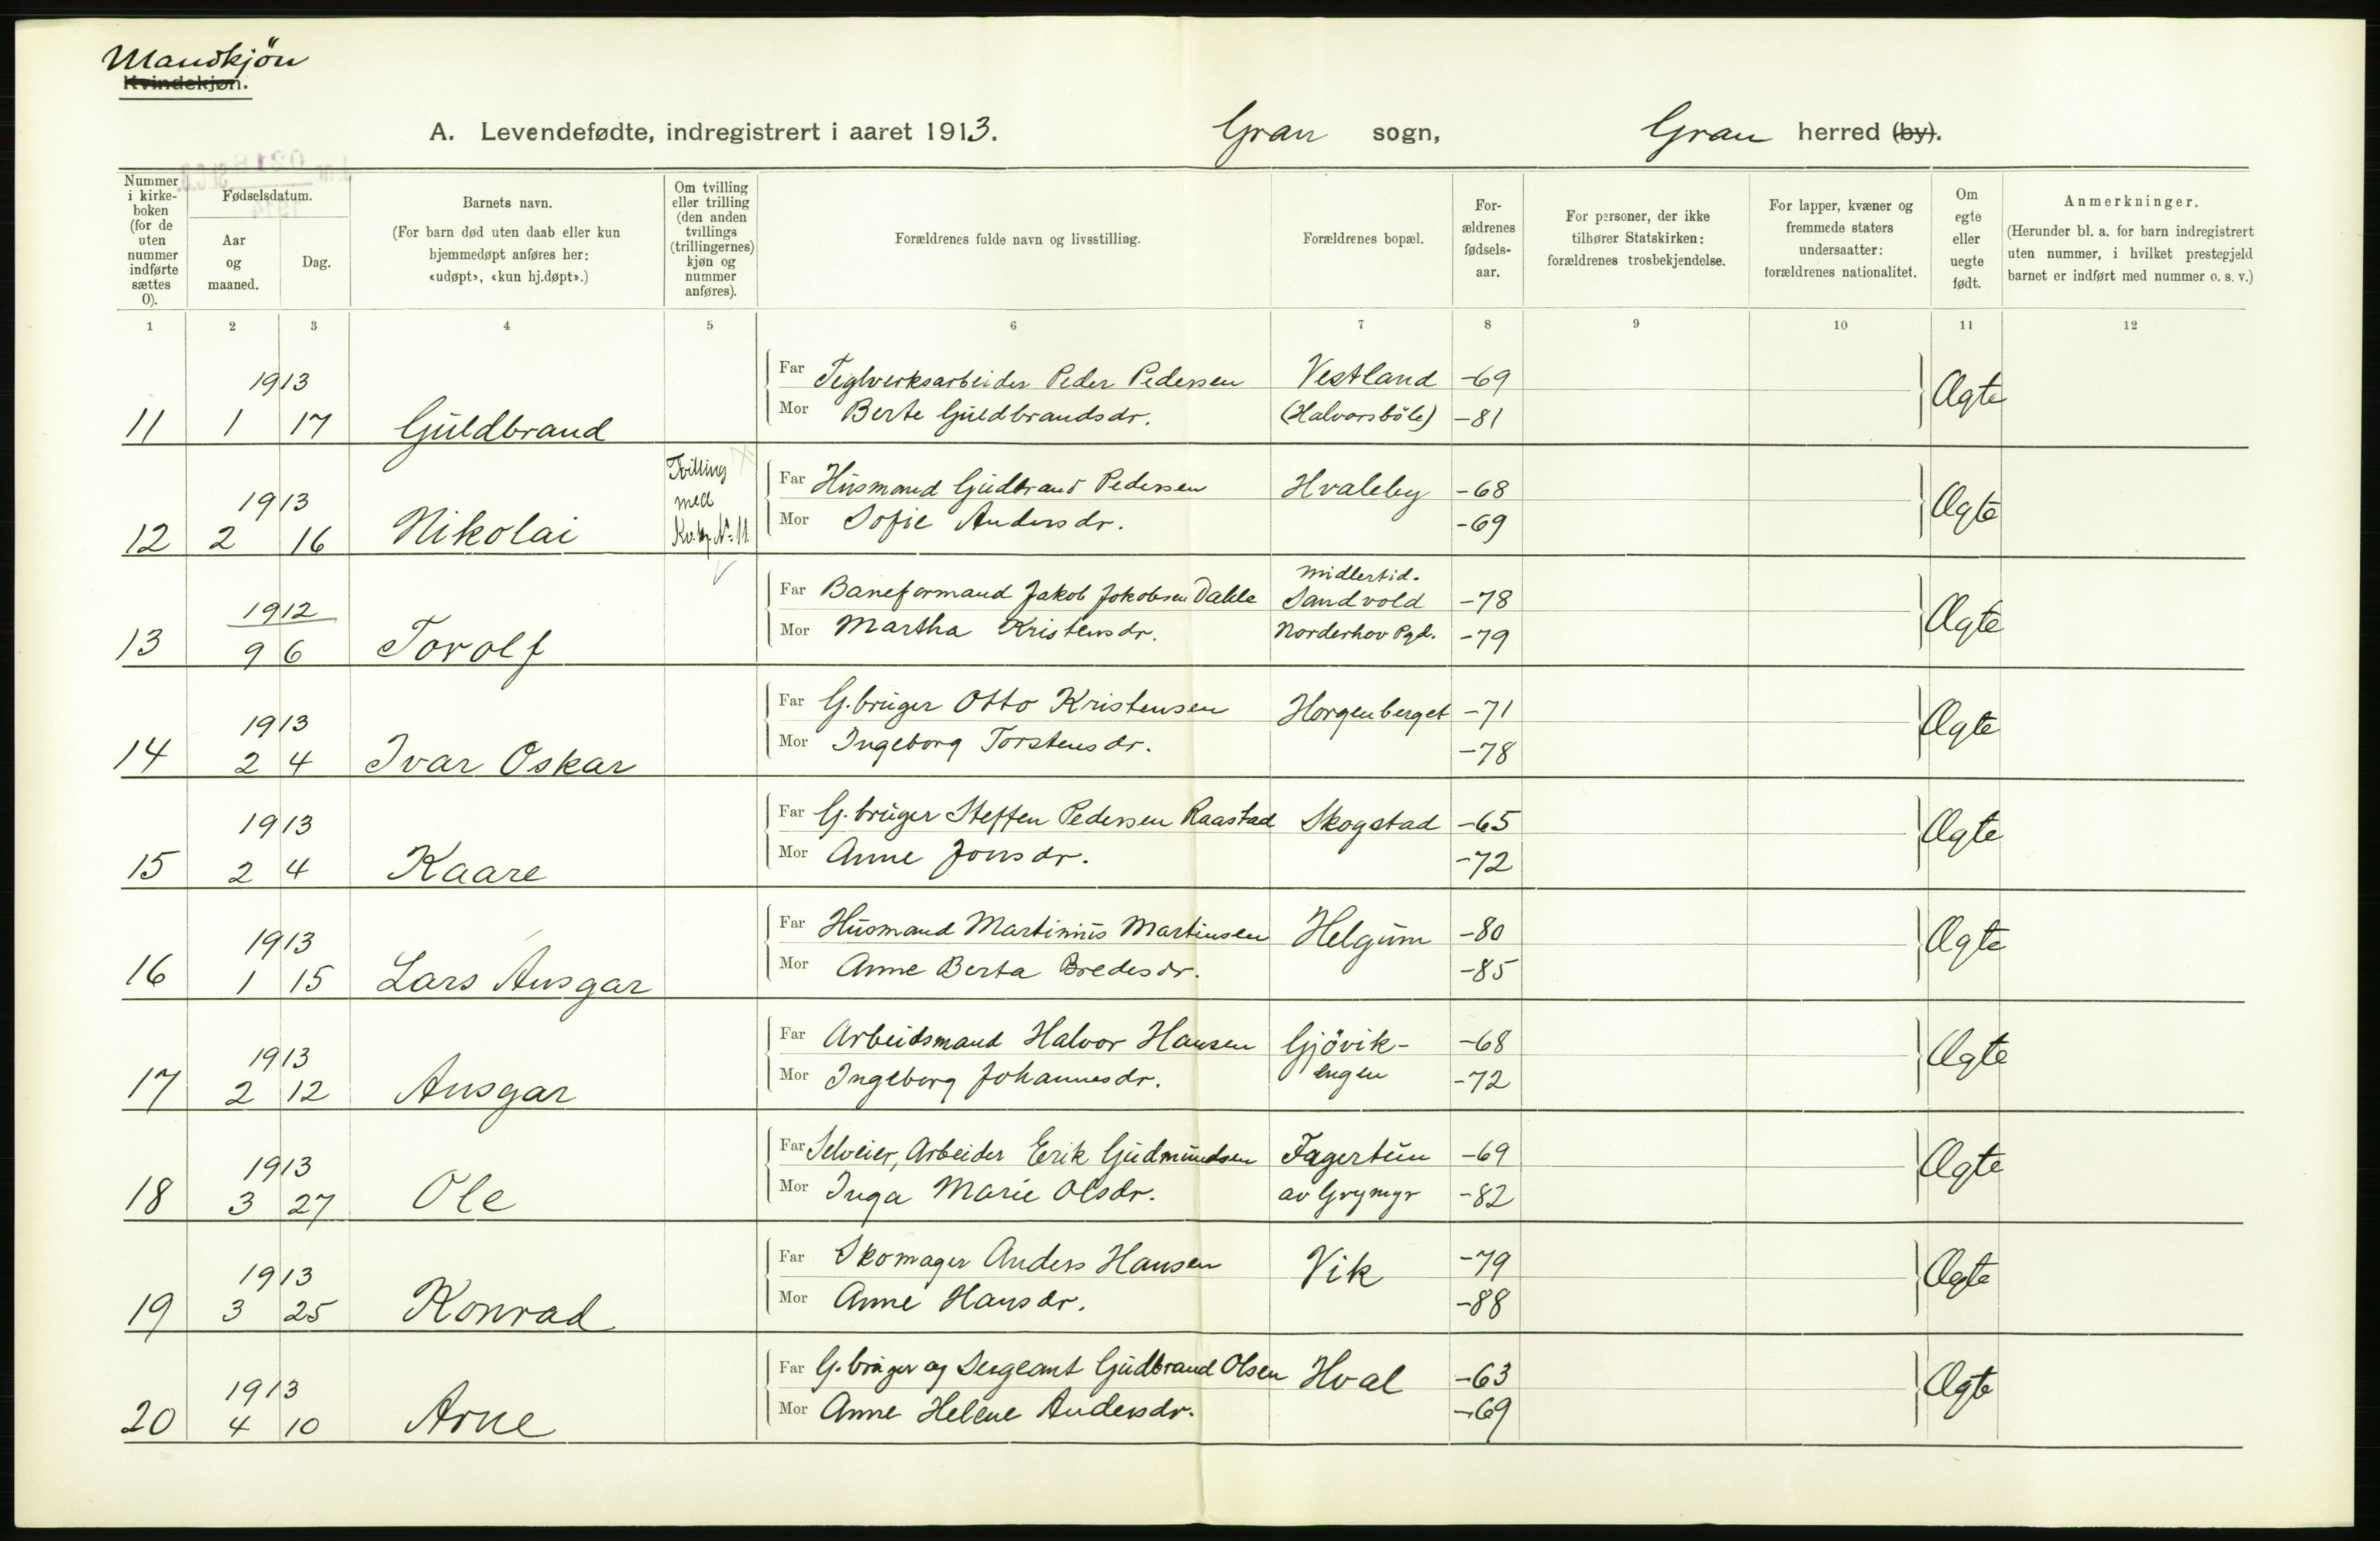 Mandkjön
Kvindekjøn.
A. Levendefødte, indregistrert i aaret 1913. Gran sogn, Gran herred (by).
Nummer i kirkeboken (for de uten nummer indførte sættes 0).
Fødselsdatum.
Aar og maaned.
Dag.
Barnets navn.
(For barn død uten daab eller kun hjemmedøpt anføres her: «udøpt», «kun hj.døpt».)
Om tvilling eller trilling (den anden tvillings (trillingernes) kjøn og nummer anføres).
Forældrenes fulde navn og livsstilling.
Forældrenes bopæl.
Forældrenes fødselsaar.
For personer, der ikke tilhører Statskirken: forældrenes trosbekjendelse.
For lapper, kvæner og fremmede staters undersaatter: forældrenes nationalitet.
Om egte eller uegte født.
Anmerkninger.
(Herunder bl. a. for barn indregistrert uten nummer, i hvilket prestegjeld barnet er indført med nummer o. s. v.)
1 2 3 4 5 6 7 8 9 10 11 12
1913 Far Teglverksarbeider Peder Pedersen Vestland -69 Ægte
11 1 17 Guldbrand Mor Berte Guldbrandsdr. (Halvorsböle) -81
1913 Tvilling med Kv.kj. No 11 Far Husmand Gudbrand Pedersen Hvaleby -68 Ægte
12 2 16 Nikolai Mor Sofie Andersdr. -69
midlertid.
1912 Far Baneformand Jakob Jokobsen Dahle Sandvold -78 Ægte
13 9 6 Torolf Mor Martha Kristensdr. Norderhov Pgd. -79
1913 Far G.bruger Otto Kristensen Horgenberget -71 Ægte
14 2 4 Ivar Oskar Mor Ingeborg Torstensdr. -78
1913 Far G.bruger Steffen Pedersen Raastad Skogstad -65 Ægte
15 2 4 Kaare Mor Anne Jonsdr. -72
1913 Far Husmand Martinius Martinsen Helgum -80 Ægte
16 1 15 Lars Ansgar Mor Anne Berta Bredesdr. -85
1913 Far Arbeidsmand Halvor Hansen Gjövik- -68 Ægte
17 2 12 Ansgar Mor Ingeborg Johannesdr. engen -72
1913 Far Selveier, Arbeider Erik Gudmundsen Fagertun -69 Ægte
18 3 27 Ole Mor Inga Marie Olsdr. av Grymyr -82
1913 Far Skomager Anders Hansen Vik -79 Ægte
19 3 25 Konrad Mor Anne Hansdr. -88
1913 Far G.bruger og Sergeant Gudbrand Olsen Hval -63 Ægte
20 4 10 Arne Mor Anne Helene Andersdr. -69